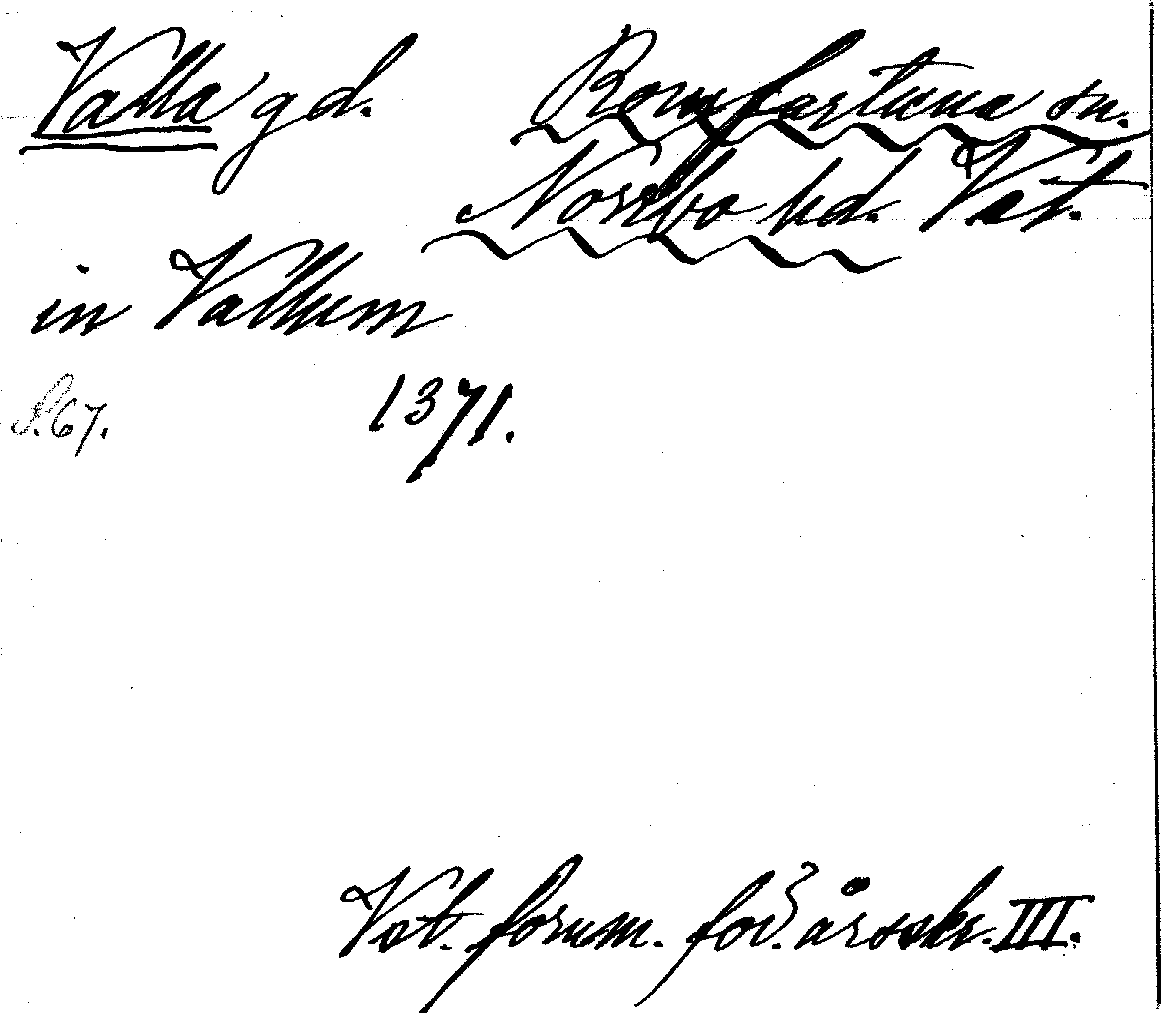 Valla gd. Romfartuna sn.
Norrbo hd. Vst.
in Vallum
S. 67. 1371.
Vst. fornm. för. årsskr. III.